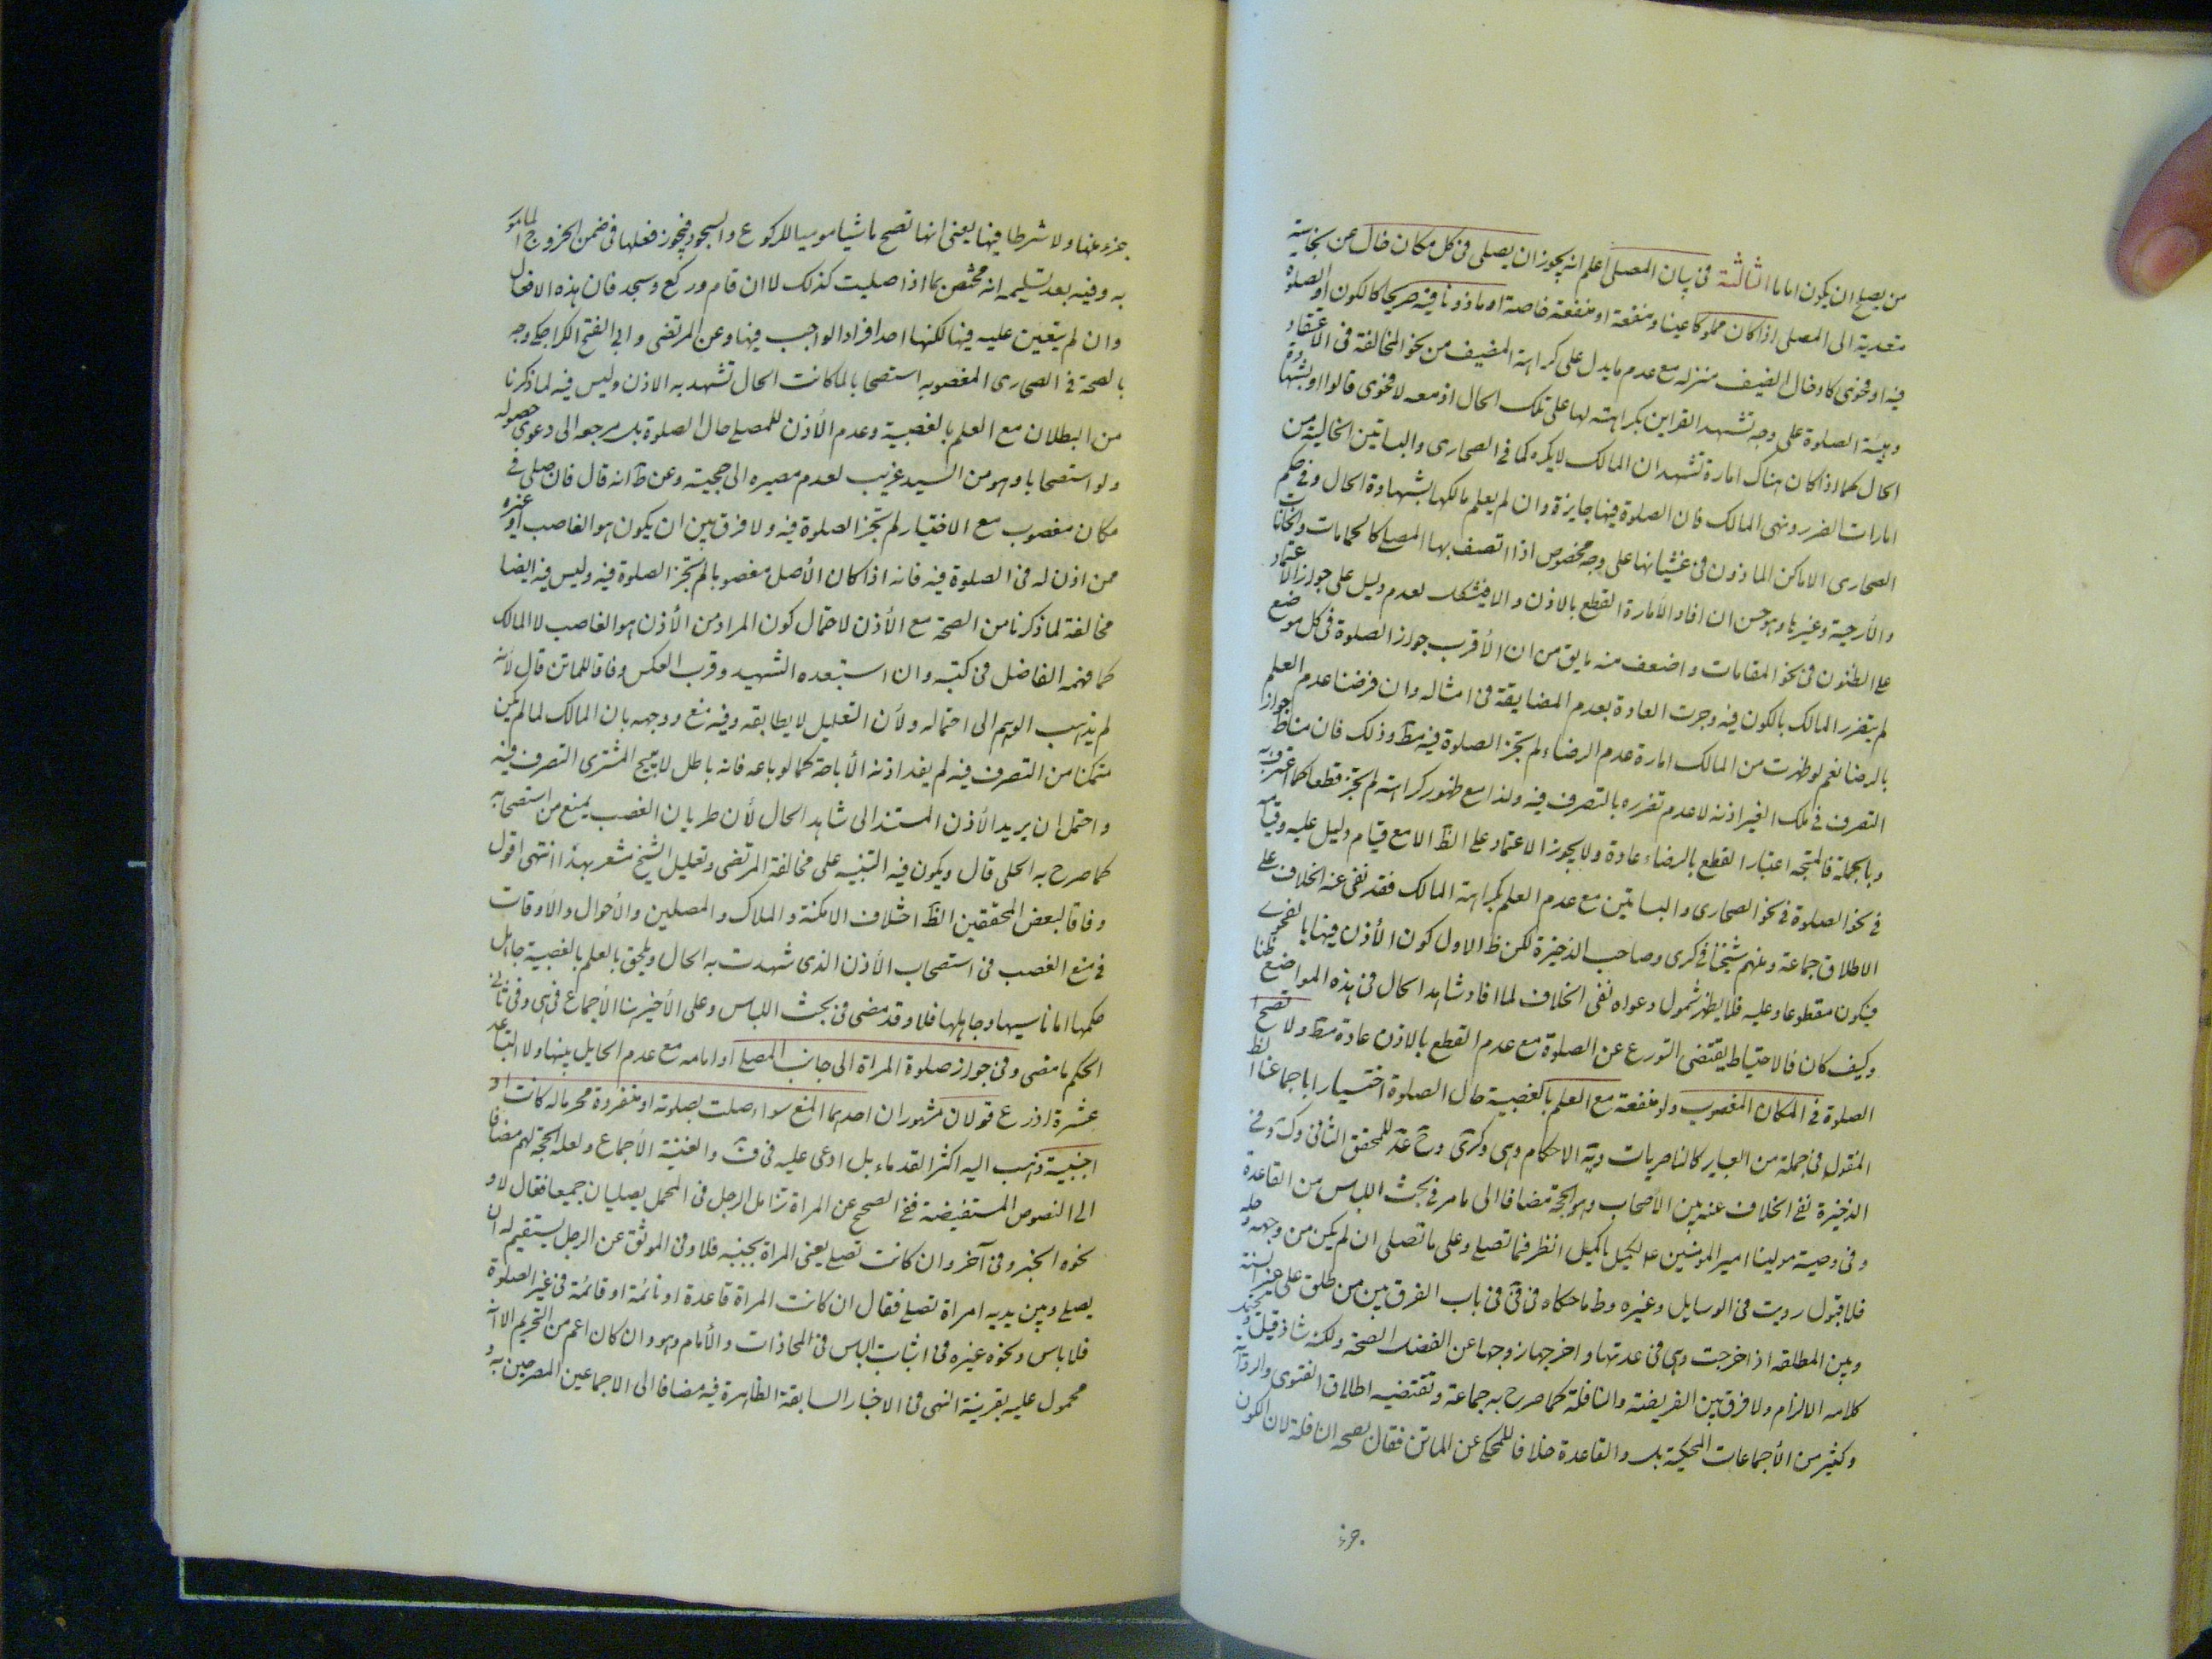 من يصلح ان يكون اماما الثالثة في بيان المصلى اعلم انه يجوز ان يصلى فى كل مكان خال عن نجاسة
متعدية الى المصلى اذا كان مملوكا عينا ومنفعة او منفعة خاصة او ماذونا فيه صريحا كالكون او الصلوة
فيه او فحوى كادخال الضيف منزله مع عدم ما يدل على كراهة المضيف من نحو المخالفة فى الاعتقاد
وهيئة الصلوة على وجه تشهد القراين بكراهته لها على تلك الحال اذ معه لا فحوى قالوا او بشهادة
الحال كما اذا كان هناك امارة تشهد ان المالك لا يكره كما فى الصحارى والبساتين الخالية من
امارات الضرر ونهى المالك فان الصلوة فيها جايزة وان لم يعلم مالكها بشهادة الحال وفى حكم
الصحارى الاماكن الماذون فى غشيانها على وجه مخصوص اذا اتصف بها المصلى كالحمامات والخانات
والأرحية وغيرها وهو حسن ان افاد الأمارة القطع بالاذن والا فيشكل لعدم دليل على جواز الاعتماد
على الظنون فى نحو المقامات واضعف منه ما يق من ان الأقرب جواز الصلوة فى كل موضع
لم يتضرر المالك بالكون فيه وجرت العادة بعدم المضايقة فى امثاله وان فرضنا عدم العلم
بالرضا نعم لو ظهرت من المالك امارة عدم الرضاء لم تجز الصلوة فيه مط وذلك فان مناط جواز
التصرف فى ملك الغير اذنه لا عدم تضرره بالتصرف فيه ولذا مع ظهور كراهته لم يجز قطعا كما اعترف به
وبالجملة فالمتجه اعتبار القطع بالرضاء عادة ولا يجوز الاعتماد على الظ الا مع قيام دليل عليه وقيامه
فى نحو الصلوة فى نحو الصحارى والبساتين مع عدم العلم بكراهة المالك فقد نفى عنه الخلاف على
الاطلاق جماعة ومنهم شيخنا فى كرى وصاحب الذخيرة لكن ظ الاول كون الأذن فيها بالفحوى
فيكون مقطوعا وعليه فلا يظهر شمول دعواه نفى الخلاف لما افاد شاهد الحال فى هذه المواضع ظنا
وكيف كان فالاحتياط يقتضى التورع عن الصلوة مع عدم القطع بالاذن عادة مط ولا تصح
الصلوة فى المكان المغصوب ولو منفعة مع العلم بالغصبية حال الصلوة اختيارا باجماعنا الظ
المنقول فى جملة من العباير كالناصريات ونية الاحكام وهى وكرى وح عد للمحقق الثانى وك وفى
الذخيرة نفى الخلاف عنه بين الأصحاب وهو الحجة مضافا الى ما مر فى بحث اللباس من القاعدة
وفى وصية مولينا امير المومنين ع لكميل يا كميل انظر فيما تصلى وعلى ما تصلى ان لم يكن من وجهه وحله
فلا قبول رويت فى الوسايل وغيره وظ ما حكاه فى فى فى باب الفرق بين من طلق على غير السنة
وبين المطلقه اذا خرجت وهى فى عدتها او اخرجها زوجها عن الفضل الصحة ولكنه شاذ قيل
كلامه الالزام ولا فرق بين الفريضة والنافلة كما صرح به جماعة وتقتضيه اطلاق الفتوى والرواية
وكثير من الأجماعات المحكية بل والقاعدة خلافا للمحكى عن الماتن فقال بصحه النافلة لان الكون
جزء
جزء منها ولا شرطا فيها يعنى انها تصح ماشيا موميا للركوع والسجود فيجوز فعلها فى ضمن الخروج المامور
به وفيه بعد تسليمه انه مختص بما اذا صليت كذلك لا ان قام وركع وسجد فان هذه الافعال
وان لم يتعين عليه فيها لكنها احد افراد الواجب فيها وعن المرتضى وابى الفتح الكراجكى وجه
بالصحة فى الصحارى المغصوبه استصحابا لما كانت الحال تشهد به الاذن وليس فيه لما ذكرنا
من البطلان مع العلم بالغصبية وعدم الأذن للمصلى حال الصلوة بل مرجعه الى دعوى حصوله
ولو استصحابا وهو من السيد غريب لعدم مصيره الى حجيته وعن ط انه قال فان صلى فى
مكان مغصوب مع الاختيار لم تجز الصلوة فيه ولا فرق بين ان يكون هو الغاصب او غيره
ممن اذن له فى الصلوة فيه فانه اذا كان الأصل مغصوبا لم تجز الصلوة فيه وليس فيه ايضا
مخالفة لما ذكرنا من الصحة مع الأذن لاحتمال كون المراد من الأذن هو الغاصب لا المالك
كما فهمه الفاضل فى كتبه وان استبعده الشهيد وقرب العكس وفاقا للماتن قال لأنه
لم يذهب الوهم الى احتماله ولأن التعليل لا يطابقه وفيه منع ووجهه بان المالك لما لم يكن
متمكنا من التصرف فيه لم يفد اذنه الأباحة كما لو باعه فانه باطل لا يبيح المشترى التصرف فيه
واحتمل ان يريد الأذن المستند الى شاهد الحال لأن طريان الغصب يمنع من استصحابه
كما صرح به الحلى قال ويكون فيه التنبيه على مخالفة المرتضى وتعليل الشيخ مشعر بهذا انتهى اقول
وفاقا لبعض المحققين الظ اختلاف الامكنة والملاك والمصلين والأحوال والأوقات
فى منع الغصب فى استصحاب الأذن الذى شهدت به الحال ويلحق بالعلم بالغصبية جاهل
حكمها اما ناسيها وجاهلها فلا وقد مضى فى بحث اللباس وعلى الأخير هنا الأجماع فى هى وفى ثانى
الحكم ما مضى وفى جواز صلوة المراة الى جانب المصلى او امامه مع عدم الحايل بينها ولا التباعد
عشرة اذرع قولان مشهوران احدهما المنع سواء صلت بصلوته او منفردة محرما له كانت او
اجنبية ذهب اليه اكثر القدماء بل ادعى عليه فى ف والغنية الأجماع ولعله الحجة لهم مضافا
الى النصوص المستفيضة ففى الصحيح عن المراة تزامل الرجل فى المحمل يصليان جميعا فقال لا و
نحوه الخبر وفى آخر وان كانت تصلى يعنى المراة بجنبه فلا وفى الموثق عن الرجل يستقيم له ان
يصلى وبين يديه امراة تصلى فقال ان كانت المراة قاعدة او نائمة او قائمة فى غير الصلوة
فلا باس ونحوه غيره فى اثبات الباس فى المحاذات والأمام وهو وان كان اعم من التحريم الا انه
محمول عليه بقرينة النهى فى الاخبار السابقة الظاهرة فيه مضافا الى الاجماعين المصرحين به و